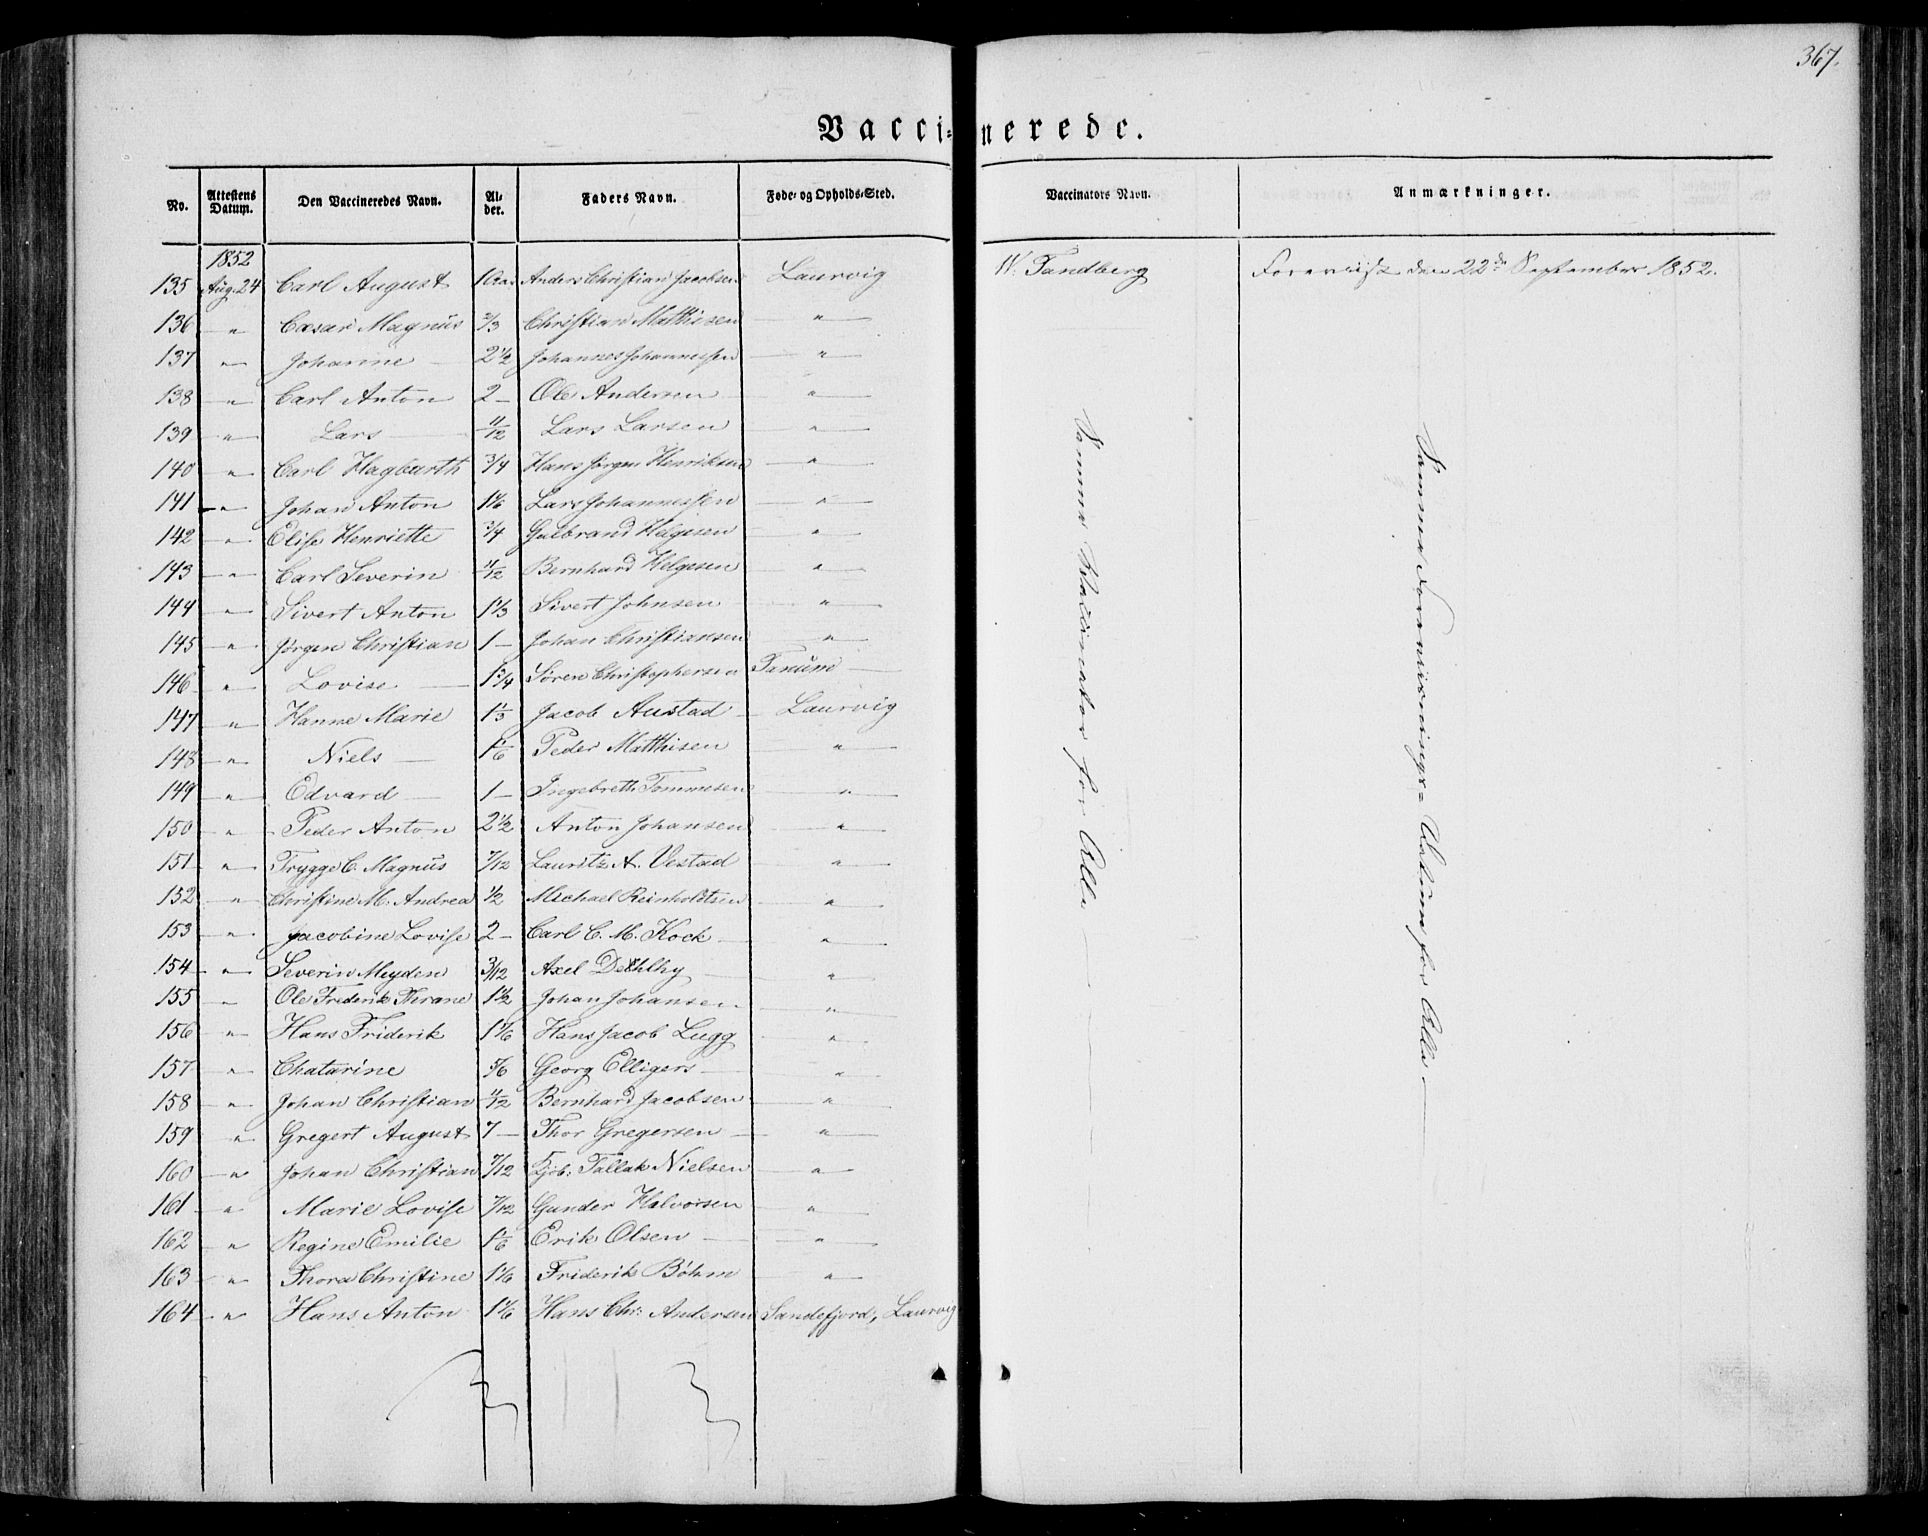 367.
Vaccinerede.
No. Attestens Datum. Den Vaccineredes Navn. Alder. Faders Navn. Føde- og Opholds-Sted. Vaccinators Navn. Anmærkninger.
1852
135 Aug. 24 Carl August 1 Aar Anders Christian Jacobsen Laurvig W: Tandberg Foreviist den 22de September 1852.
136 " Cæsar Magnus 2/3 Christian Mathisen "
137 " Johanne 2 1/2 Johannes Johannessen "
138 " Carl Anton 2 – Ole Andersen "
139 " Lars 11/12 Lars Larsen "
140 " Carl Hagbarth 3/4 Hans Jørgen Henriksen "
141 " Johan Anton 1 1/6 Lars Johannessen "
142 " Elise Henriette 3/4 Gulbrand Helgesen "
143 " Carl Severin 11/12 Bernhard Helgesen "
144 " Sivert Anton 1 1/3 Sivert Johnsen "
145 " Jørgen Christian 1 – Johan Christiansen "
146 " Lovise 1 3/4 Søren Christophersen Tanum
147 " Hanne Marie 1 1/3 Jacob Austad Laurvig
148 " Niels 1 1/6 Peder Matthisen "
149 " Edvard 1 – Ingebreth Tommesen "
150 " Peder Anton 2 1/2 Anton Johansen "
151 " Trygge C. Magnus 7/12 Lauritz A. Vestad "
152 " Christine M. Andrea 1/2 Michael Reinholdtsen "
153 " Jacobine Lovise 2 – Carl C. M. Kock "
154 " Severin Meyden 3/12 Axel "
155 " Ole Frederik Thrane 1 1/2 Johan Johansen "
156 " Hans Friderik 1 1/6 Hans Jacob Lugg "
157 " Chatarine 5/6 Georg Elligers "
158 " Johan Christian 11/12 Bernhard Jacobsen "
159 " Gregert August 7 – Thor Gregersen "
160 " Johan Christian 7/12 Kjøb: Tallak Nielsen "
161 " Marie Lovise 7/12 Gunder Halvorsen "
162 " Regine Emilie 1 1/6 Erik Olsen "
163 " Thora Christine 1 1/6 Friderik Bøhm "
164 " Hans Anton 1 1/6 Hans Chr: Andersen Sandefjord, Laurvig
Samme Vaccinator for Alle
Samme Foreviisnings-Datum for Alle